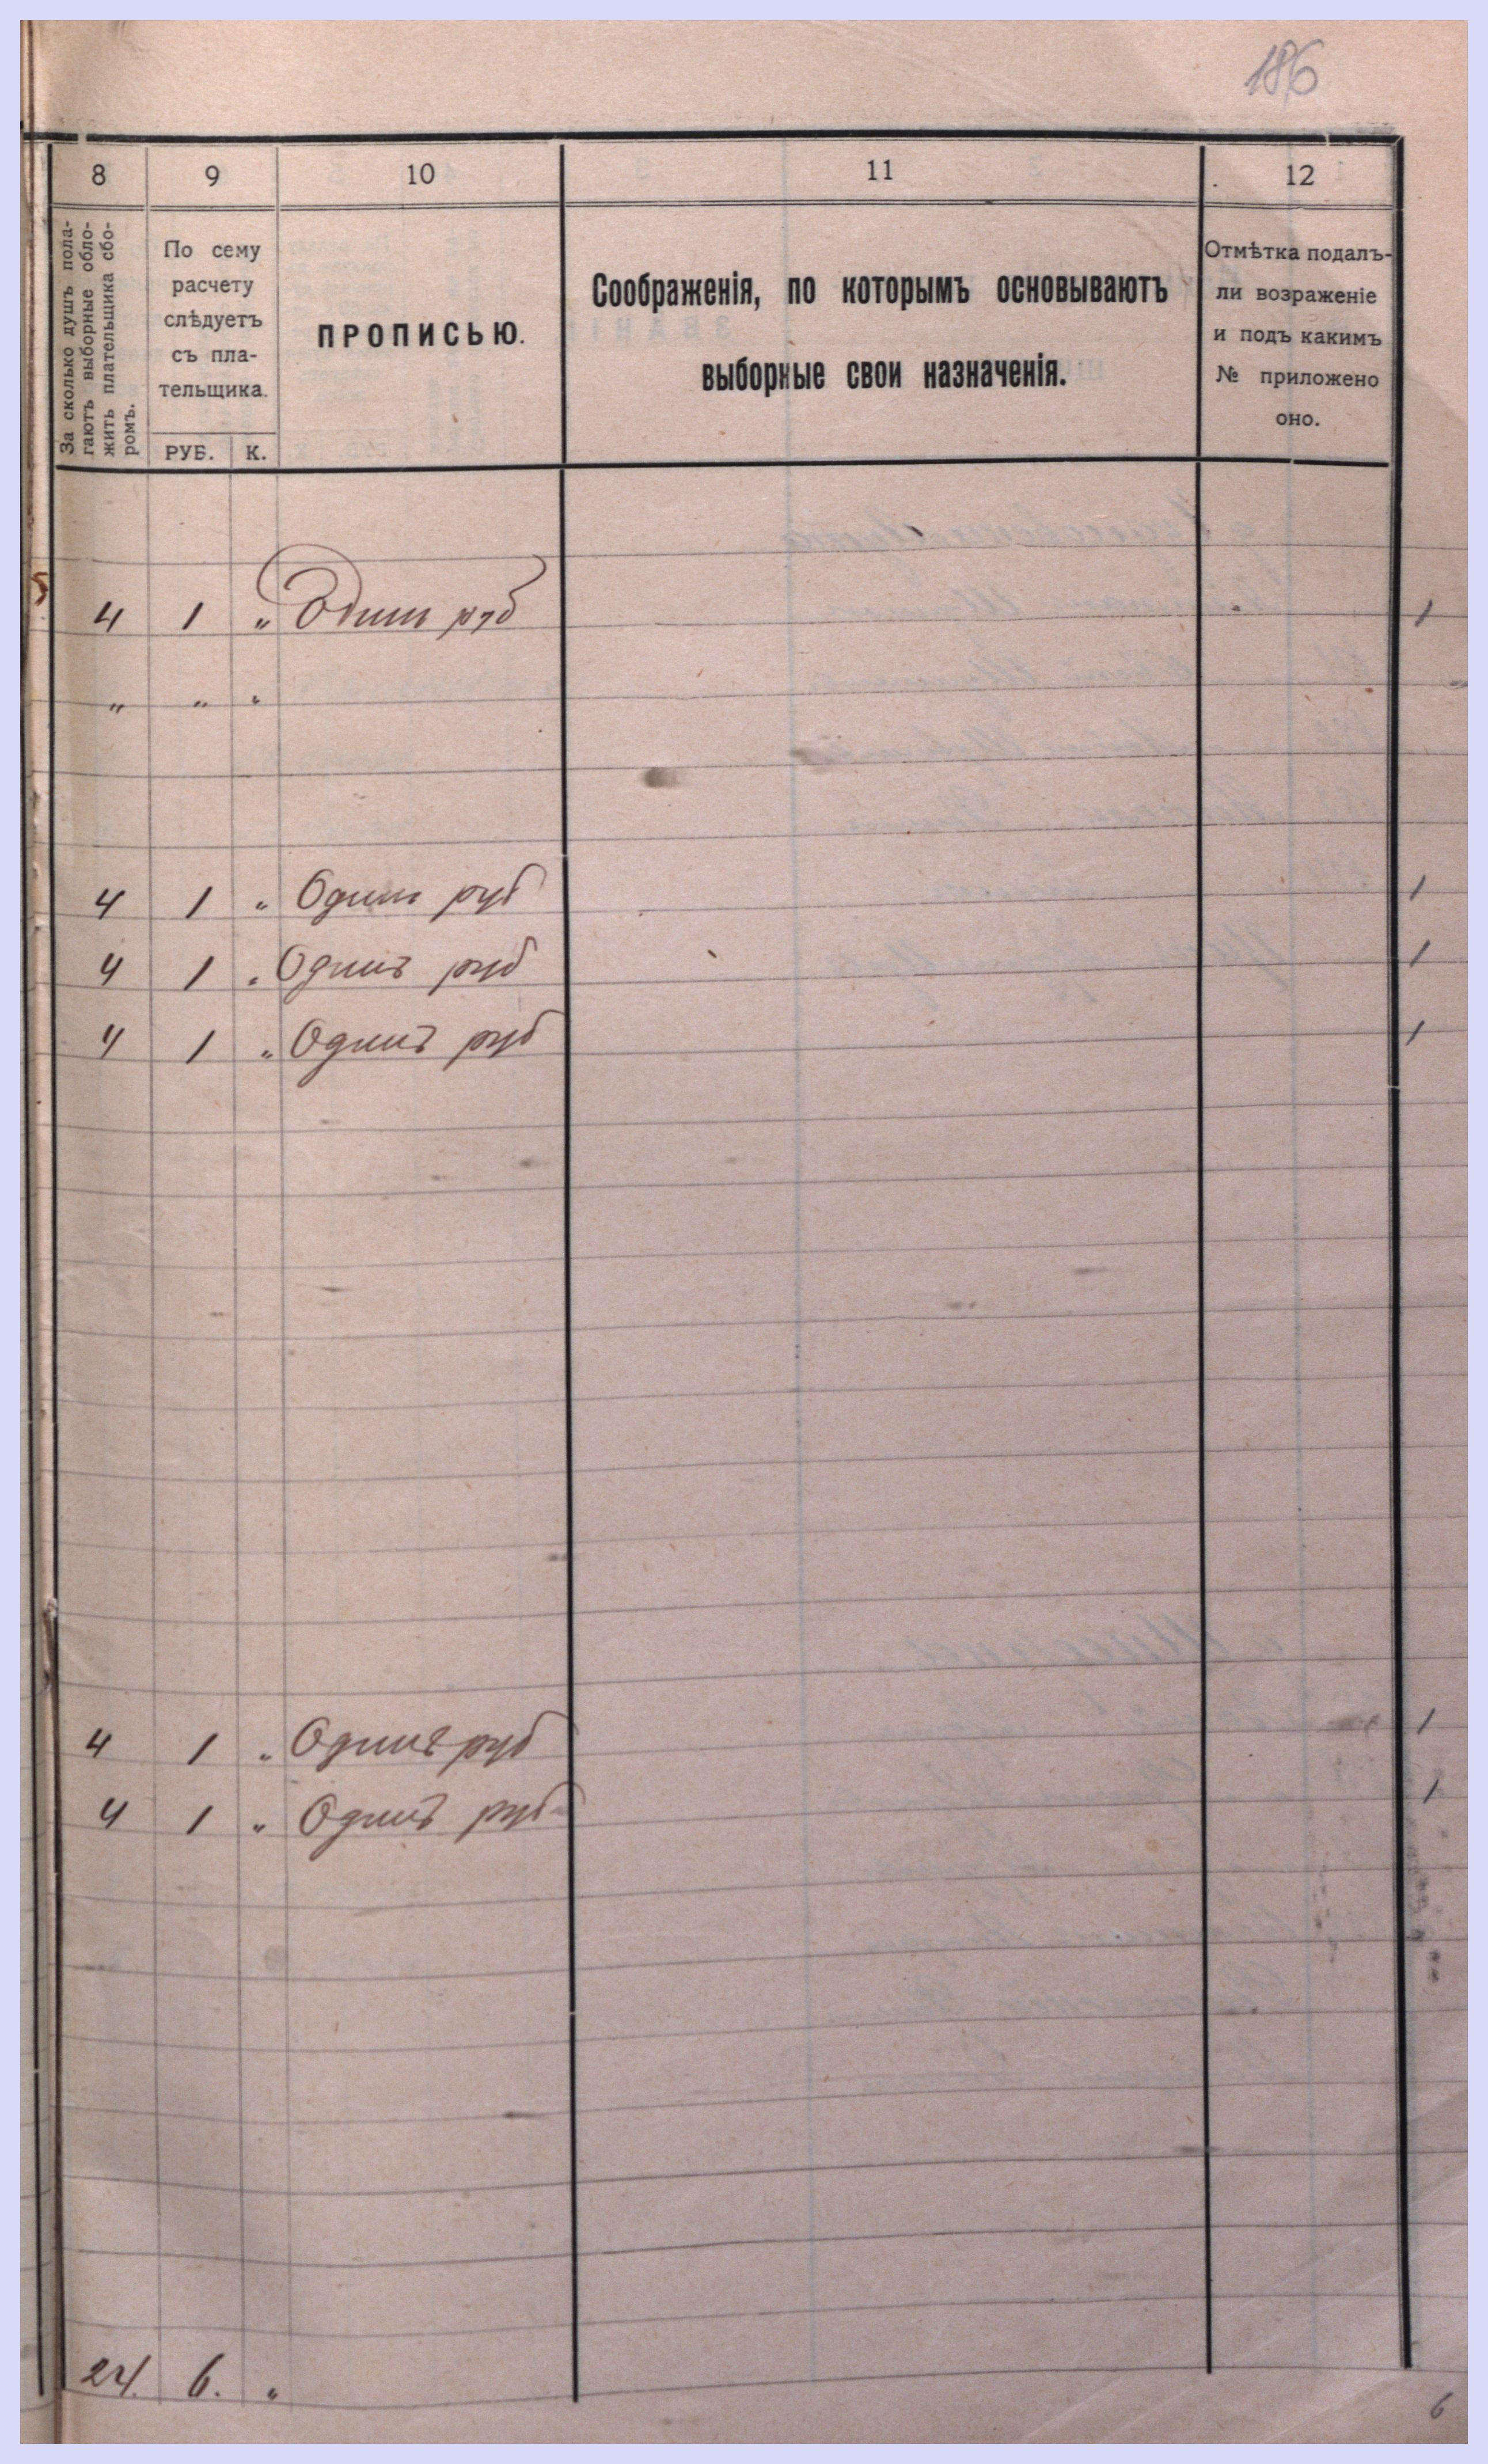 186
8 9 10 11 12
За сколько душъ пола-
гаютъ выборные обло-
жить плательщика сбо-
ромъ.
По сему
расчету
слѣдуетъ
съ пла-
тельщика.
РУБ. К.
ПРОПИСЬЮ.
Соображенія, по которымъ основываютъ
выборные свои назначенія.
Отмѣтка подалъ-
ли возраженіе
и подъ какимъ
№ приложено
оно.
4 1 „ Одинъ руб 1
„ „ „
4 1 „ Одинъ руб 1
4 1 „ Одинъ руб 1
4 1 „ Одинъ руб 1
4 1 „ Одинъ руб 1
4 1 „ Одинъ руб 1
24. 6. „
6